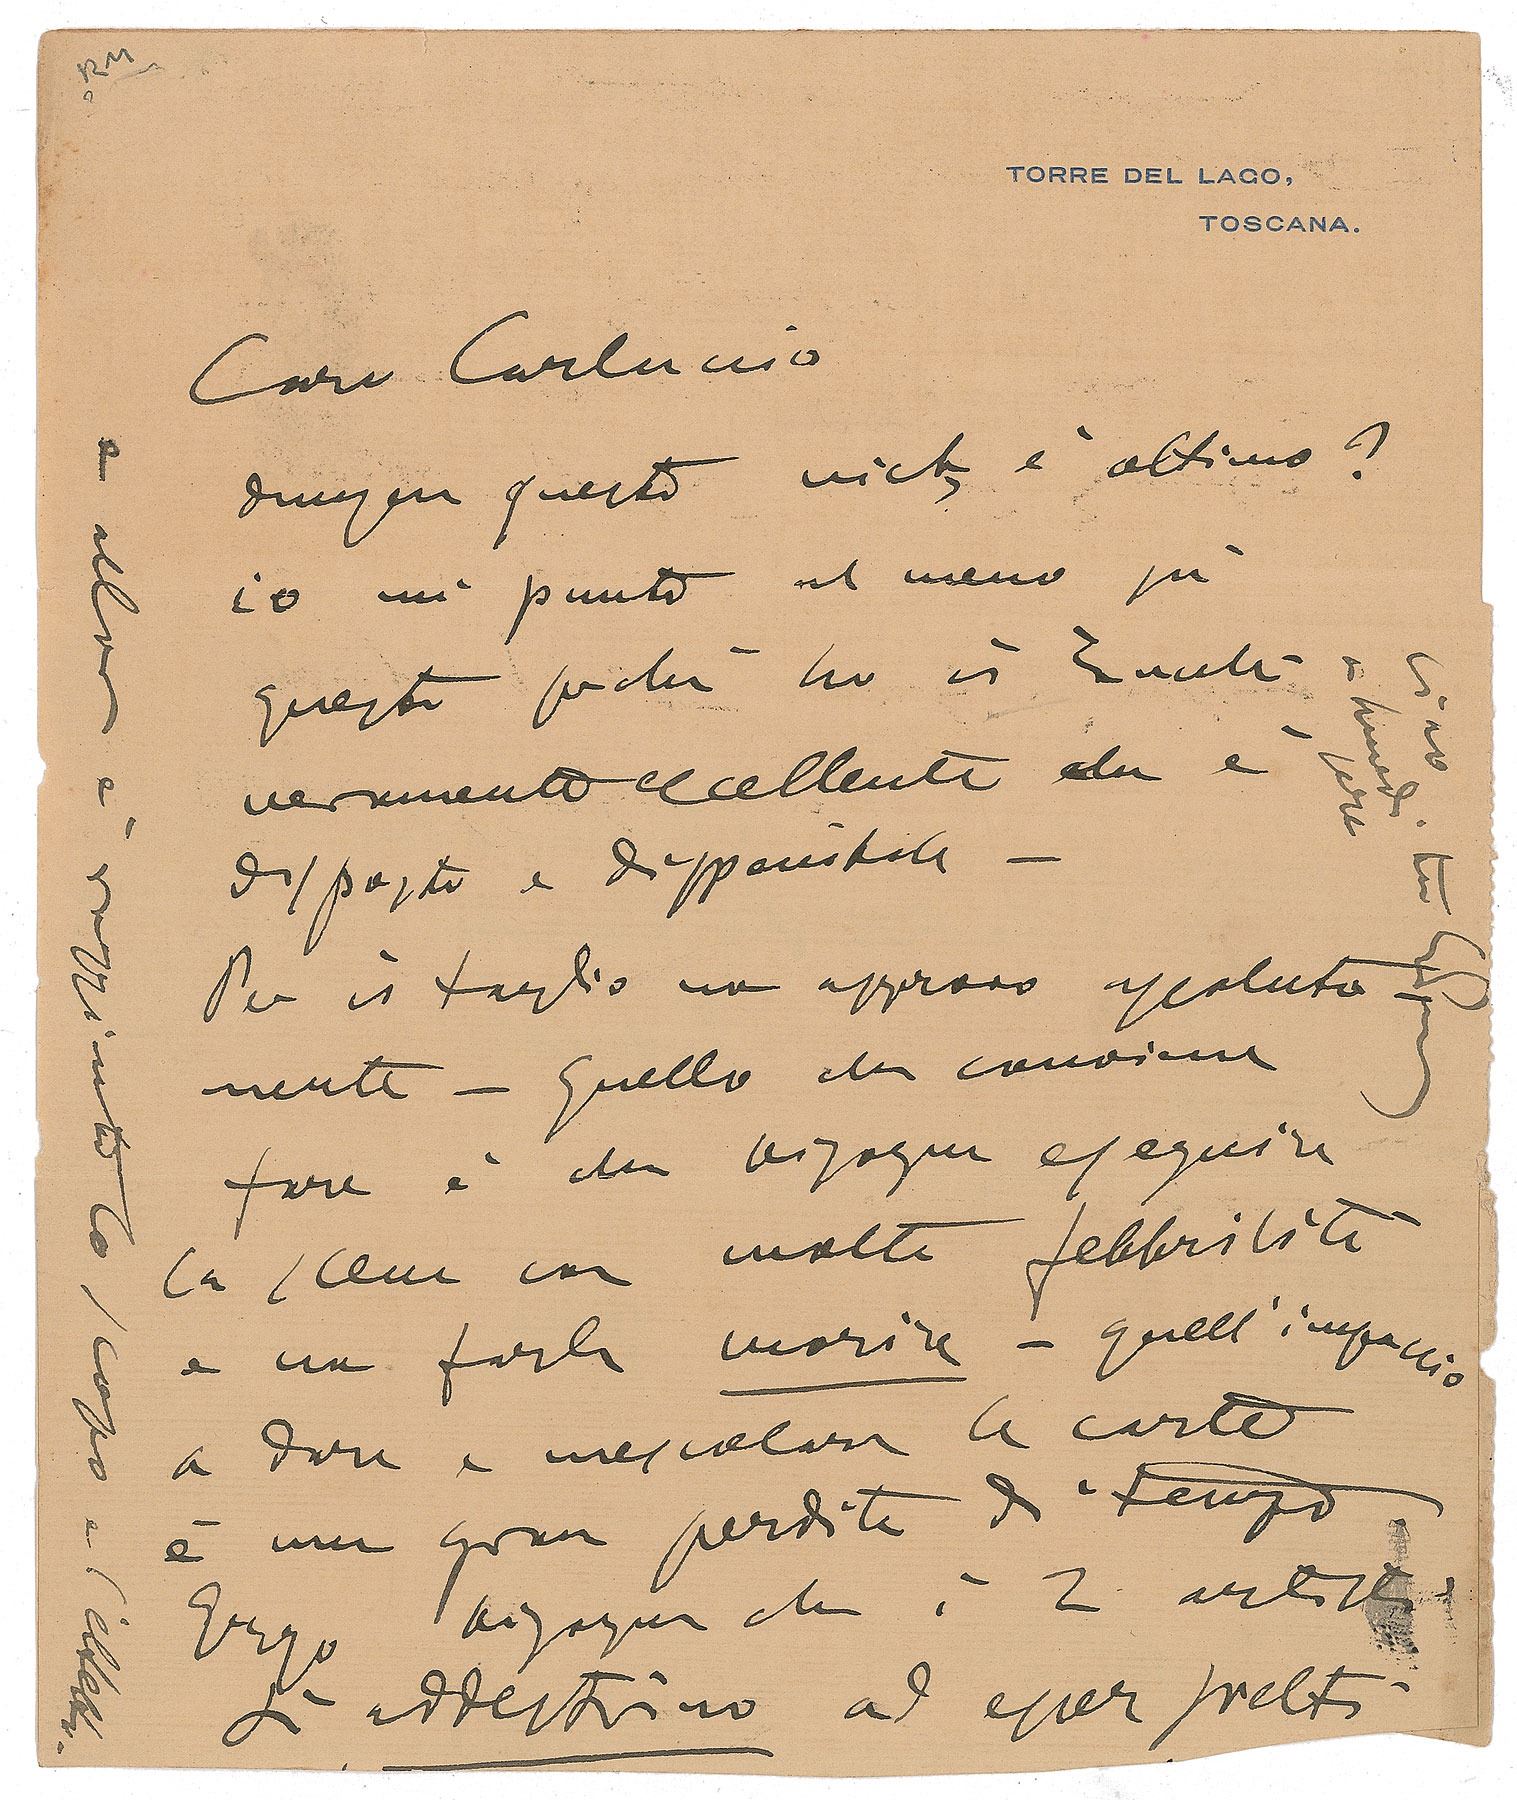 TORRE DEL LAGO,
TOSCANA.
Caro Carluccio
dunque questo è ottimo?
io mi punto al meno più
questo perchè ho il Zucchi
veramente eccellente che è
disposto e disponibile —
Per il taglio non approvo assoluta
mente — quello che conviene
fare è che bisogna eseguire
la scena con molta febbrilità
e non farla morire — quell'impaccio
a dare e mescolare le carte
è una gran perdita di tempo
Ergo bisogna che i 2 artisti
si addestrino ad esser svelti
e allora è raggiunto lo scopo e l'effetto.
Ciao
tuo